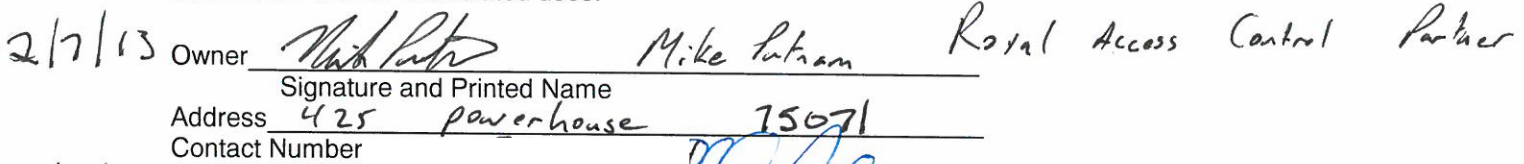 2/7/13 Owner Mike Putnam Royal Access Control Partner
Signature and Printed Name
Address 425 powerhouse 75071
Contact Number